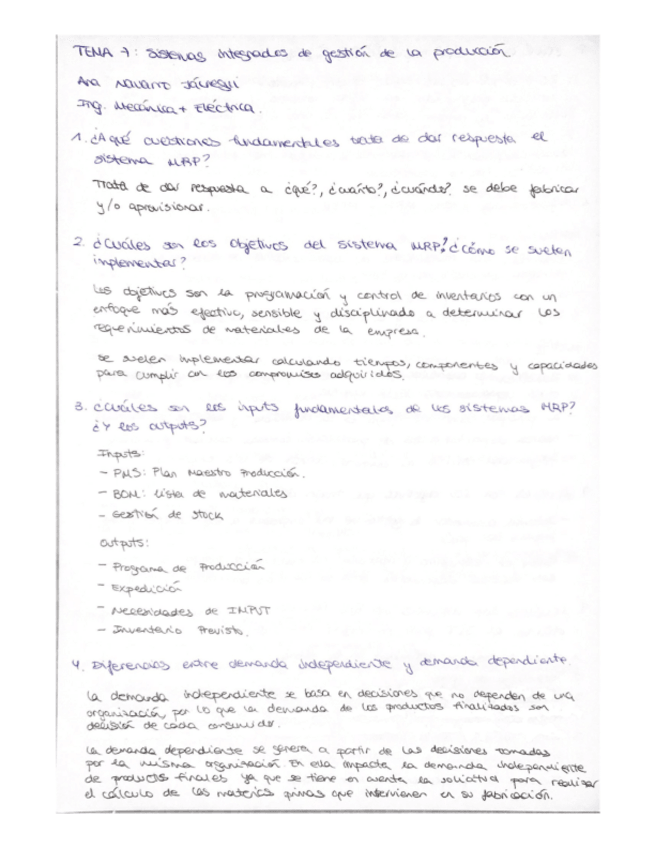 TEMA 7: Sistemas integrados de gestión de la producción
Ana Navarro Jáuregui
Ing. Mecánica + Eléctrica.
1. ¿A qué cuestiones fundamentales trata de dar respuesta el
sistema MRP?
Trata de dar respuesta a ¿qué?, ¿cuánto?, ¿cuándo? se debe fabricar
y/o aprovisionar.
2. ¿Cuáles son los objetivos del sistema MRP? ¿Cómo se suelen
implementar?
Los objetivos son la programación y control de inventarios con un
enfoque más efectivo, sensible y disciplinado a determinar los
requerimientos de materiales de la empresa.
Se suelen implementar calculando tiempos, componentes y capacidades
para cumplir con los compromisos adquiridos.
3. ¿Cuáles son los inputs fundamentales de los sistemas MRP?
¿Y los outputs?
Inputs:
- PMS: Plan Maestro Producción.
- BOM: Lista de materiales
- Gestión de stock
Outputs:
- Programa de Producción
- Expedición
- Necesidades de INPUT
- Inventario Previsto.
4. Diferencias entre demanda independiente y demanda dependiente.
La demanda independiente se basa en decisiones que no dependen de una
organización, por lo que la demanda de los productos finalizados son
decisión de cada consumidor.
La demanda dependiente se genera a partir de las decisiones tomadas
por la misma organización. En ella impacta la demanda independiente
de productos finales ya que se tiene en cuenta la solicitud para realizar
el cálculo de las materias primas que intervienen en su fabricación.